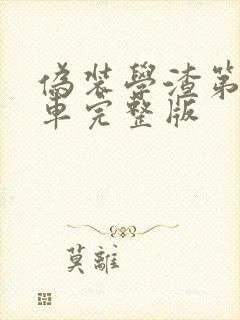 偽裝學渣第
車完整版
莫離